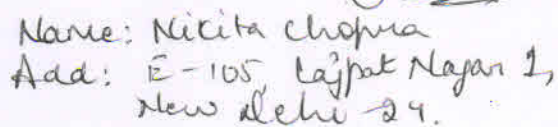 Name: Nikita Chopra
Add: E-105, Lajpat Nagar 1,
New Delhi -24.